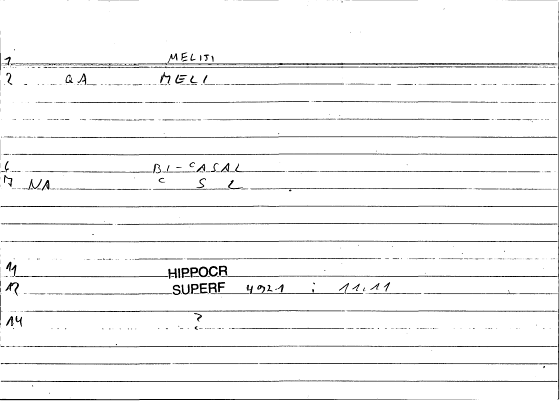 1 MELITI
2 QA MELI
6 BI-CASAL
7 NA C S L
11 HIPPOCR
12 SUPERF 4921 : 11.11
14 ?